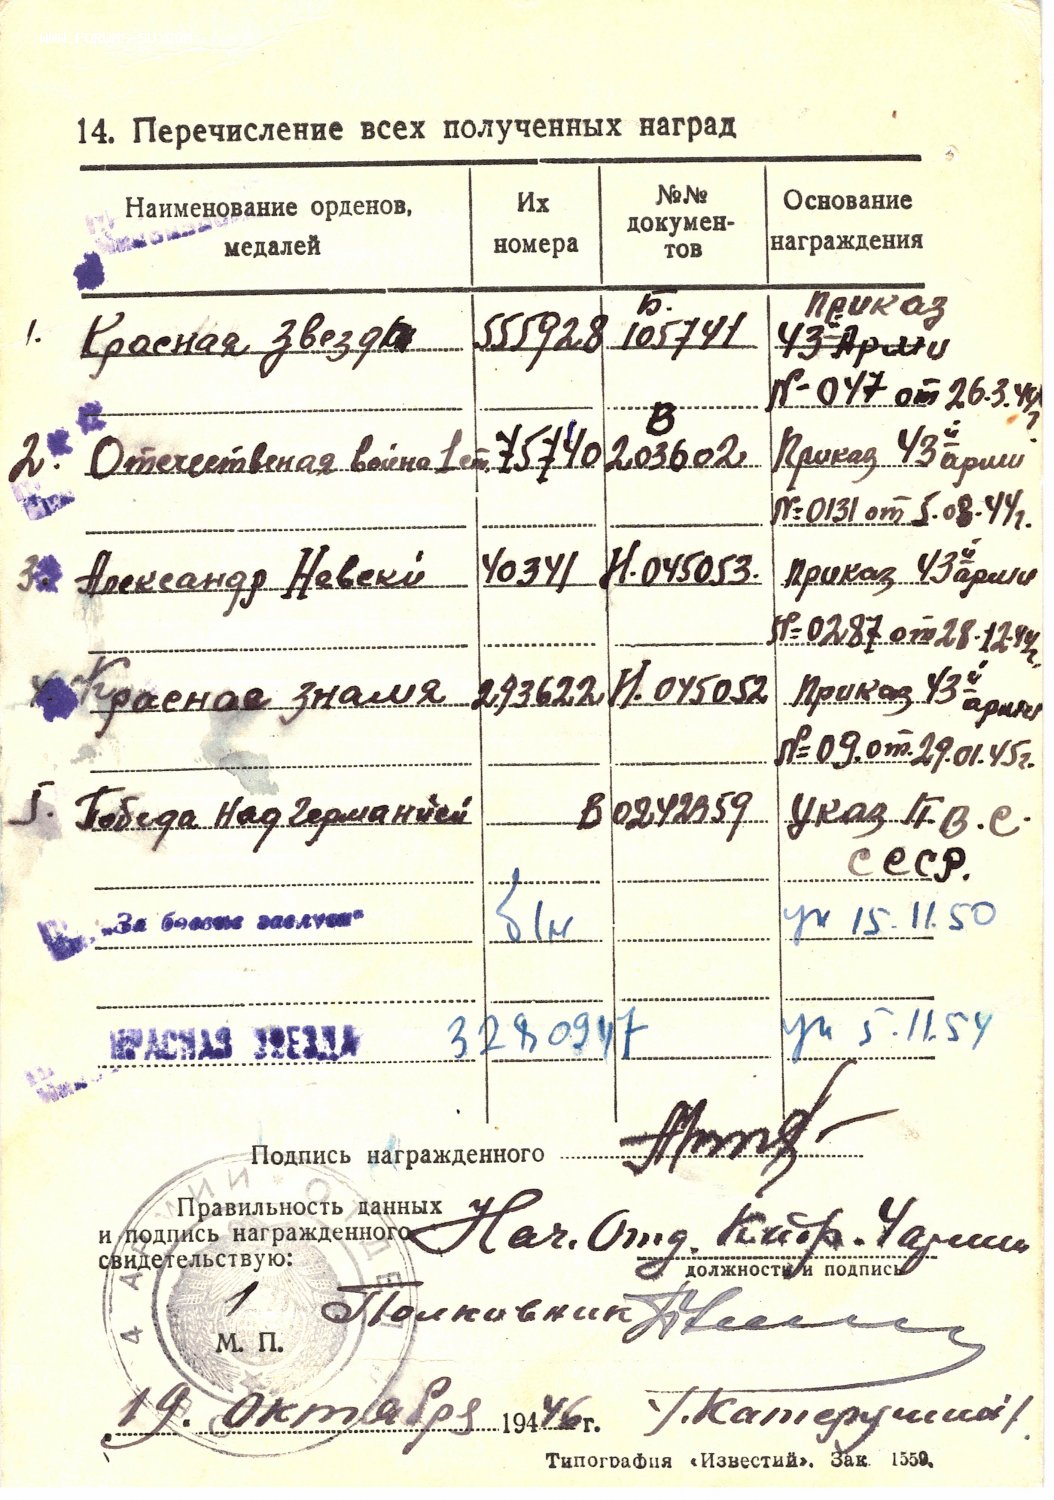 14. Перечисление всех полученных наград
Наименование орденов, медалей
Их номера
№№ докумен-тов
Основание награждения
1. Красная Звезда 555928 Б. 105741 Приказ 43й Арми
№-047 от 26.3.44г
2. Отечественая война 1 ст. 75740 В 203602 Приказ 43й арми
№=0131 от 5.08.44г.
3. Александр Невский 40341 И.045053. приказ 43й арми
№=0287 от 28.12.44г.
4. Красное знамя 293622 И.045052 Приказ 43й армии
№=09. от 29.01.45г.
5. Победа над германией В 0242859 Указ П.В.С.
СССР.
„За боевые заслуги“ б/н ук 15.11.50
КРАСНАЯ ЗВЕЗДА 3280947 ук 5.11.54
Подпись награжденного
Правильность данных
и подпись награжденного
свидетельствую:
Нач. Отд. Кадр. 4 армии
должность и подпись
Полковник
М. П.
19. октября 1946 г.
Типография «Известий». Зак. 1559.